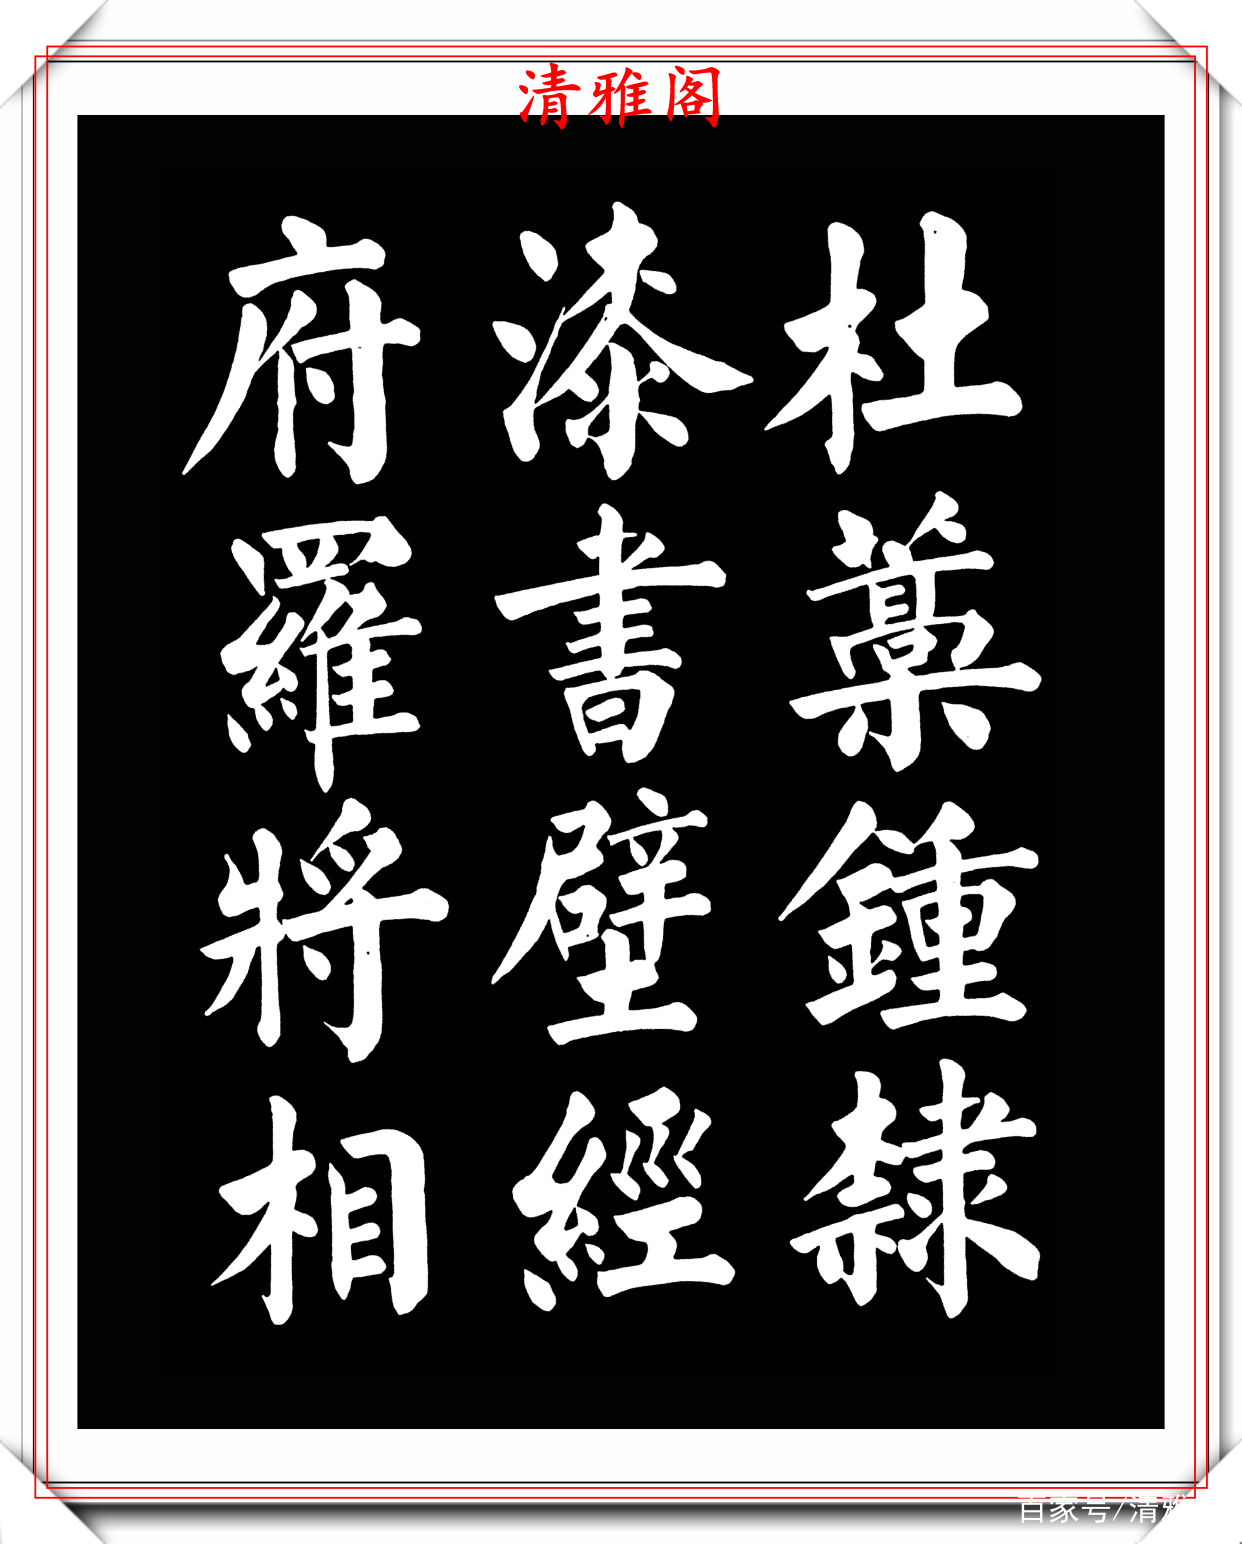 清雅阁
杜藁鍾隸
漆書壁經
府羅將相
百家号/清雅